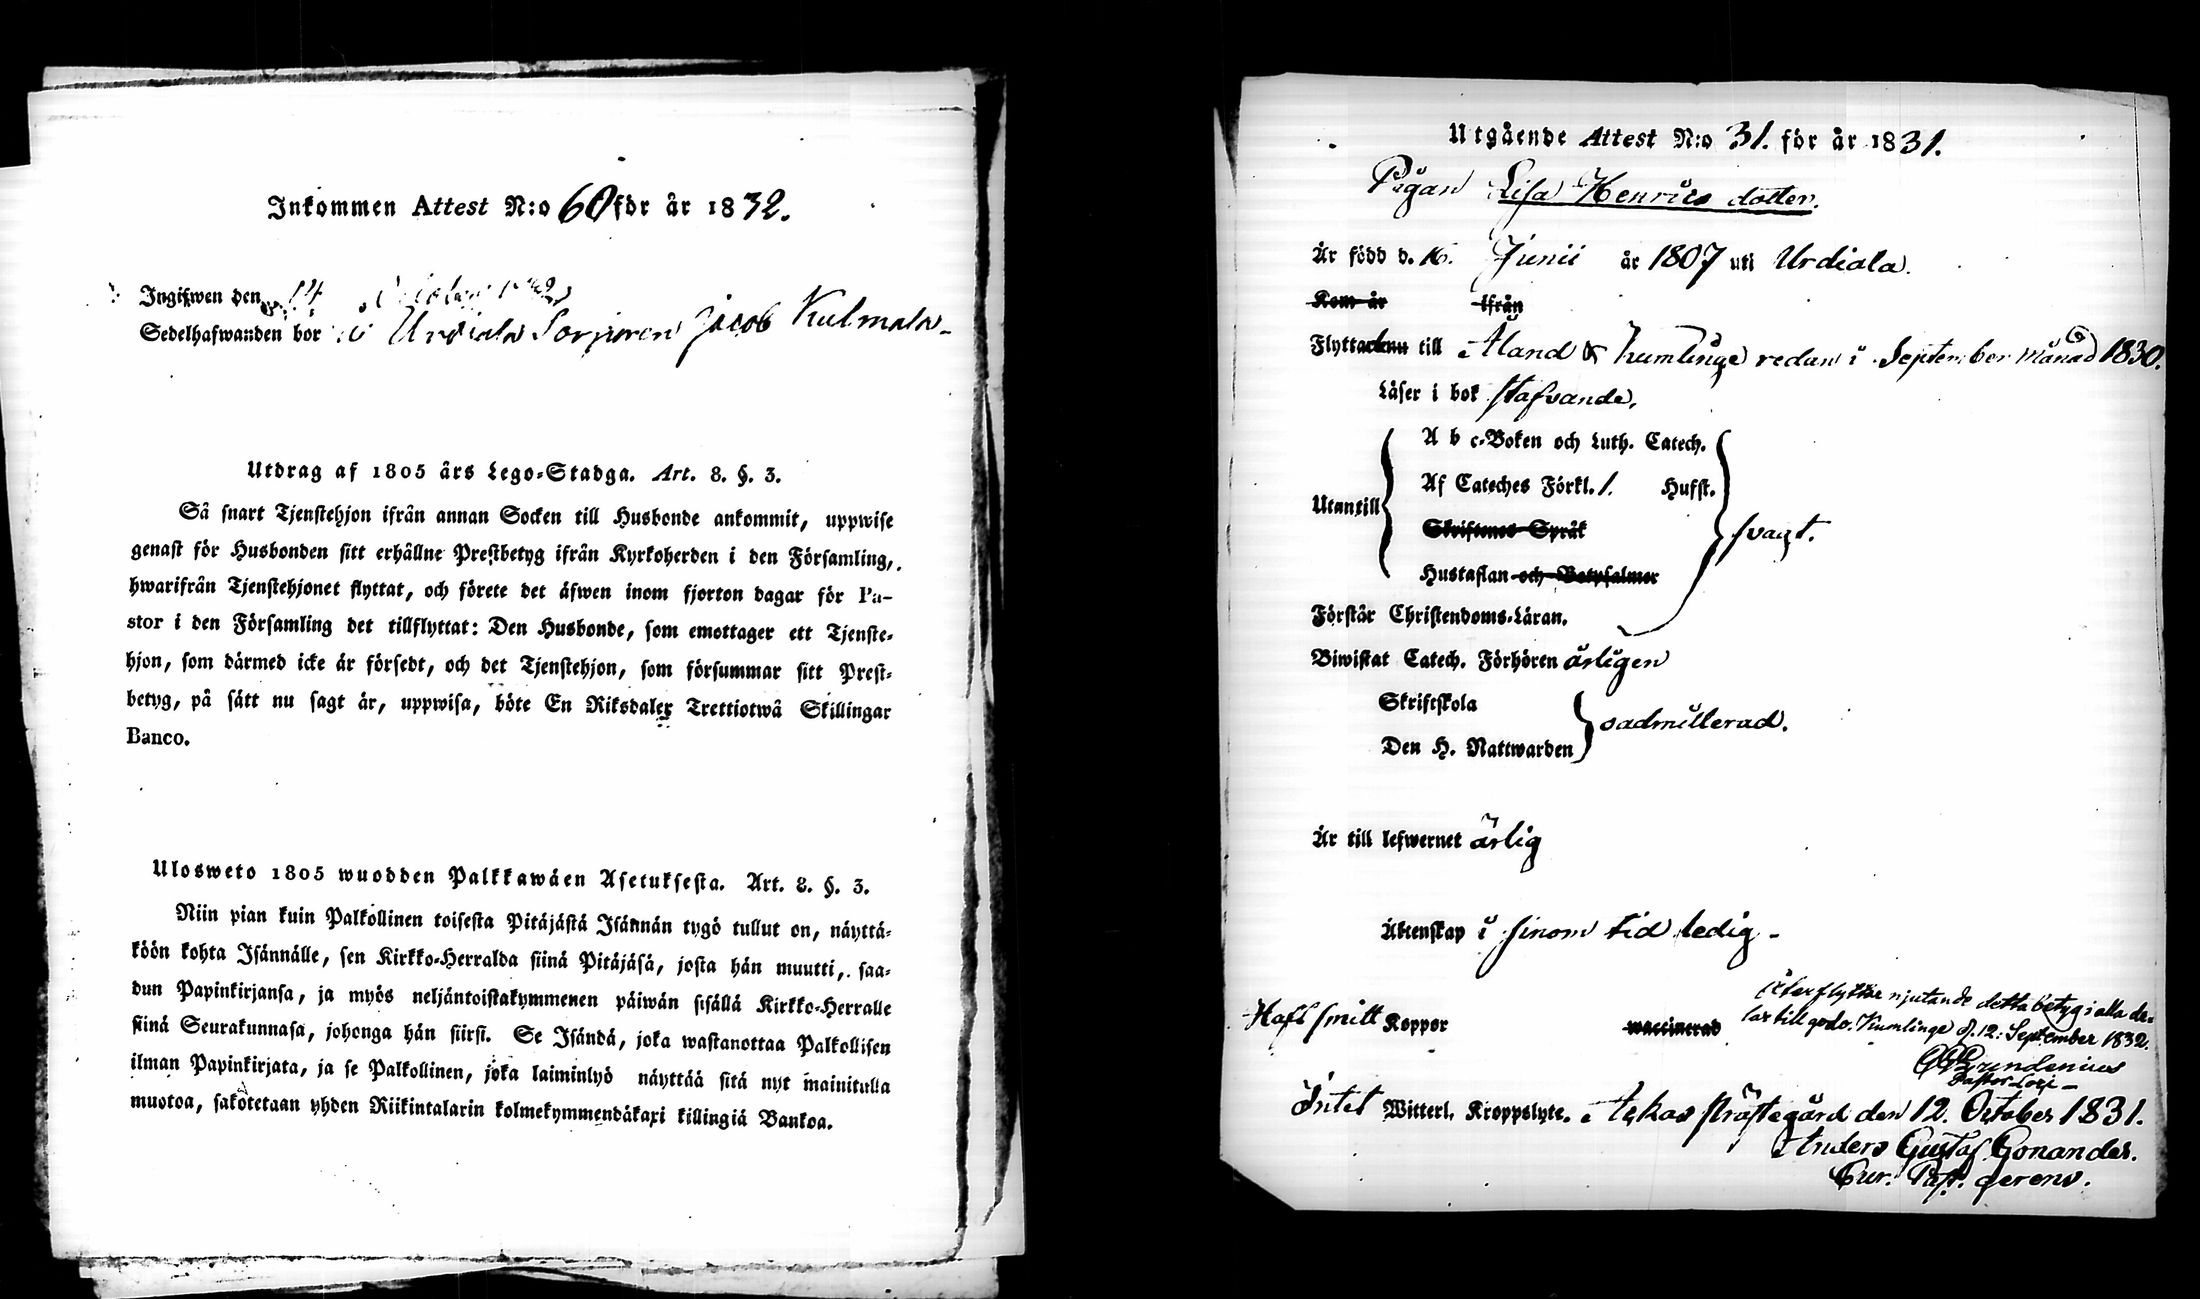 Inkommen Attest N:o 60 för år 1832.
Ingifwen den 14 October 1832
Sedelhafwanden bor i Urdiala Sorjoren Jacob Kulmala
Utdrag af 1805 års Lego-Stadga. Art. 8. §. 3.
Så snart Tjenstehjon ifrån annan Socken till Husbonde ankommit, uppwise
genast för Husbonden sitt erhållne Prestbetyg ifrån Kyrkoherden i den Församling,
hwarifrån Tjenstehjonet flyttat, och förete det äfwen inom fjorton dagar för Pa-
stor i den Församling det tillflyttat: Den Husbonde, som emottager ett Tjenste-
hjon, som därmed icke är försedt, och det Tjenstehjon, som försummar sitt Prest-
betyg, på sätt nu sagt är, uppwisa, böte En Riksdaler Trettiotwå Skillingar
Banco.
Ulosweto 1805 wuodden Palkkawäen Asetuksesta. Art. 8. §. 3.
Niin pian kuin Palkollinen toisesta Pitäjästä Isännän tygö tullut on, näyttä-
köön kohta Isännälle, sen Kirkko-Herralda siinä Pitäjäsä, josta hän muutti, saa-
dun Papinkirjansa, ja myös neljäntoistakymmenen päiwän sisällä Kirkko-Herralle
siinä Seurakunnasa, johonga hän siirsi. Se Isändä, joka wastanottaa Palkollisen
ilman Papinkirjata, ja se Palkollinen, joka laiminlyö näyttää sitä nyt mainitulla
muotoa, sakotetaan yhden Riikintalarin kolmekymmendäkaxi killingiä Bankoa.
Utgående Attest N:o 31. för år 1831.
Pigan Lisa Henrics dotter.
Är född d. 16. Junii år 1807 uti Urdiala.
Kom år ifrån
Flyttade till Åland & Kumlinge redan i September månad 1830.
Läser i bok stafvande.
A b c-Boken och Luth. Catech.
Af Cateches Förkl. 1. Hufst.
Utantill
Skriftenes Språk
svagt.
Hustaflan och Botpsalmer
Förstår Christendoms-Läran.
Biwistat Catech. Förhören årligen
Skriftskola
oadmitterad.
Den H. Nattwarden
Är till lefwernet ärlig
Äktenskap i sinom tid ledig -
Återflyttar njutande detta betyg i alla de-
lar till godo. Kumlinge d. 12: September 1832.
Haft smitt Koppor waccinerad
Pastor
Intet Witterl. Kroppslyte. Ackas Prästegård den 12. October 1831.
Anders Gustaf Gonander.
Cur. Past. gerens.